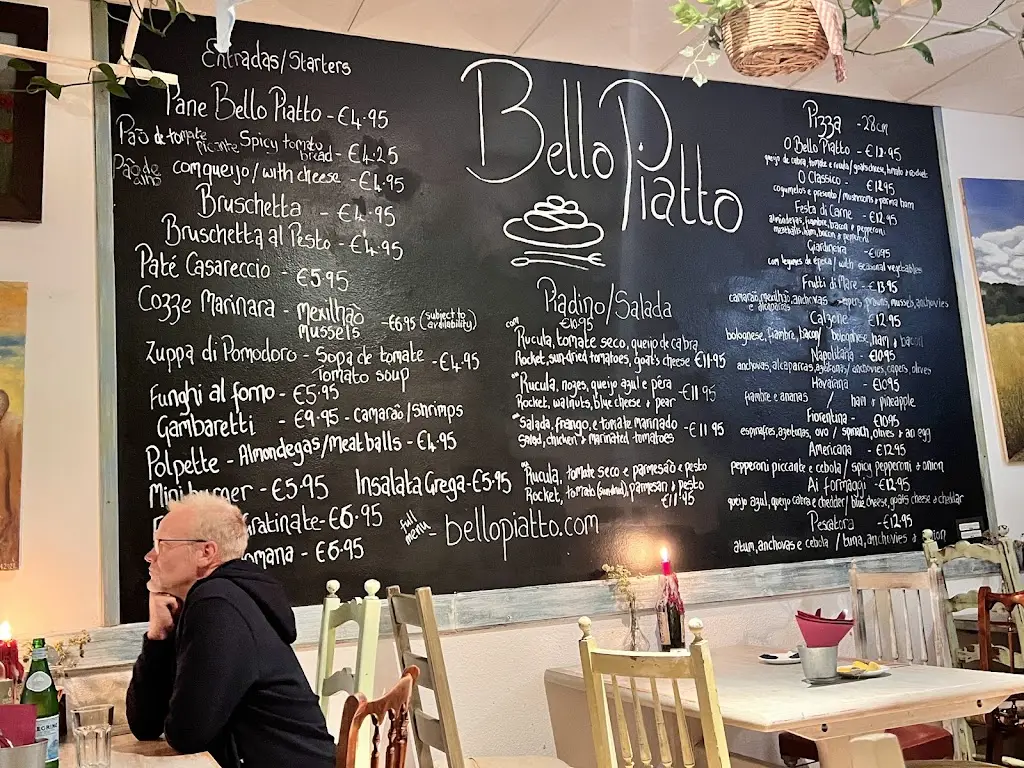 Entradas/Starters
Pane Bello Piatto - €4.95
Pão de tomate picante Spicy tomato bread - €4.25
Pão de com queijo / with cheese - €4.95
Bruschetta - €4.95
Bruschetta al Pesto - €4.95
Paté Casareccio - €5.95
Cozze Marinara - mexilhão mussels - €6.95 (subject to availability)
Zuppa di Pomodoro - Sopa de tomate - €4.95
Tomato soup
Funghi al forno - €5.95
Gambaretti - €9.95 - camarão/shrimps
Polpette - Almondegas/meatballs - €4.95
Mini burger - €5.95 Insalata Grega - €5.95
Gratinate - €6.95
omana - €6.95
full menu - bellopiatto.com
Bello Piatto
Piadino/Salada
com €10.95
Rucula, tomate seco, queijo de cabra
Rocket, sun dried tomatoes, goat's cheese €11.95
Rucula, nozes, queijo azul e pêra
Rocket, walnuts, blue cheese & pear - €11.95
Salada, frango, e tomate marinado
Salad, chicken & marinated tomatoes - €11.95
Rucula, tomate seco e parmesão e pesto
Rocket, tomato (sundried), parmesan & pesto
€11.95
Pizza - 28cm
O Bello Piatto - €12.95
queijo de cabra, tomate e rucula / goats cheese, tomato & rocket
O Classico - €12.95
cogumelos e presunto / mushrooms & parma ham
Festa di Carne - €12.95
almôndegas, fiambre, bacon & pepperoni
meatballs, ham, bacon & pepperoni
Giardineira - €10.95
com legumes da época / with seasonal vegetables
Frutti di Mare - €13.95
camarão, mexilhão, anchovas e alcaparras prawns, mussels, anchovies
Calzone - €12.95
bolognese, fiambre, bacon / bolognese, ham, bacon
Napolitana - €10.95
anchovas, alcaparras, azeitonas / anchovies, capers, olives
Havaiana - €10.95
fiambre e ananas / ham & pineapple
Fiorentina - €10.95
espinafres, azeitonas, ovo / spinach, olives & an egg
Americana - €12.95
pepperoni piccante e cebola / spicy pepperoni & onion
Ai Formaggi - €12.95
queijo azul, queijo cabra e chedder / blue cheese, goats cheese & cheddar
Pescatora - €12.95
atum, anchovas e cebola / tuna, anchovies & onion